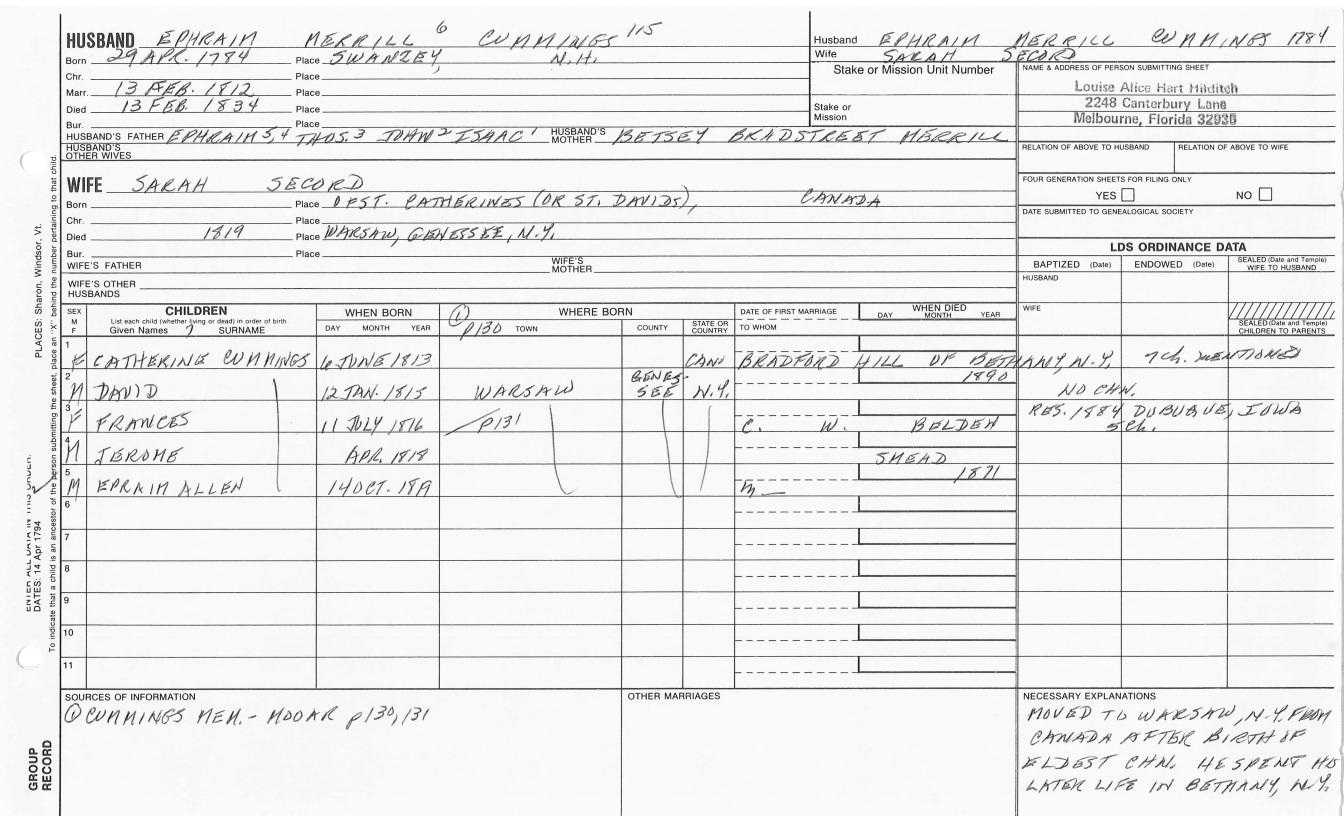 HUSBAND EPHRAIM MERRILL 6 CUMMINGS 115
Born 29 APR. 1784 Place SWANZEY, N.H.
Chr. Place
Marr. 13 FEB. 1812 Place
Died 13 FEB. 1834 Place
Bur. Place
HUSBAND'S FATHER EPHRAIM 5,4 THOS. 3 JOHN 2 ISAAC 1 HUSBAND'S MOTHER BETSEY BRADSTREET MERRILL
HUSBAND'S OTHER WIVES
Husband EPHRAIM MERRILL CUMMINGS 1784
Wife SARAH SECORD
Stake or Mission Unit Number
Stake or Mission
NAME & ADDRESS OF PERSON SUBMITTING SHEET
Louise Alice Hart Hilditch
2248 Canterbury Lane
Melbourne, Florida 32935
RELATION OF ABOVE TO HUSBAND RELATION OF ABOVE TO WIFE
FOUR GENERATION SHEETS FOR FILING ONLY
YES NO
DATE SUBMITTED TO GENEALOGICAL SOCIETY
WIFE SARAH SECORD
Born Place OF ST. CATHERINES (OR ST. DAVIDS), CANADA
Chr. Place
Died 1819 Place WARSAW, GENESSEE, N.Y.
Bur. Place
WIFE'S FATHER WIFE'S MOTHER
WIFE'S OTHER HUSBANDS
LDS ORDINANCE DATA
BAPTIZED (Date) ENDOWED (Date) SEALED (Date and Temple) WIFE TO HUSBAND
HUSBAND
WIFE
SEALED (Date and Temple) CHILDREN TO PARENTS
SEX M F
CHILDREN
List each child (whether living or dead) in order of birth
Given Names 7 SURNAME
WHEN BORN
DAY MONTH YEAR
1 WHERE BORN
p130 TOWN COUNTY STATE OR COUNTRY
DATE OF FIRST MARRIAGE
TO WHOM
WHEN DIED
DAY MONTH YEAR
1 F CATHERINE CUMMINGS 6 JUNE 1813 CAN BRADFORD HILL OF BETHANY, N.Y. 7 ch. MENTIONED
2 M DAVID 12 JAN. 1815 WARSAW GENESSEE N.Y. 1890 NO CHN.
3 F FRANCES 11 JULY 1816 p131 C. W. BELDEN RES. 1884 DUBUQUE, IOWA 5 ch.
4 M JEROME APR. 1818 SMEAD
5 M EPRAIM ALLEN 14 OCT. 1871 m
6
7
8
9
10
11
SOURCES OF INFORMATION
1 CUMMINGS MEM. - MOOAR p130,131
OTHER MARRIAGES
NECESSARY EXPLANATIONS
MOVED TO WARSAW, N.Y. FROM
CANADA AFTER BIRTH OF
ELDEST CHN. HE SPENT HIS
LATER LIFE IN BETHANY, N.Y.
PLACES: Sharon, Windsor, Vt.
DATES: 14 Apr 1794
To indicate that a child is an ancestor of the person submitting the sheet, place an "X" behind the number pertaining to that child.
GROUP RECORD